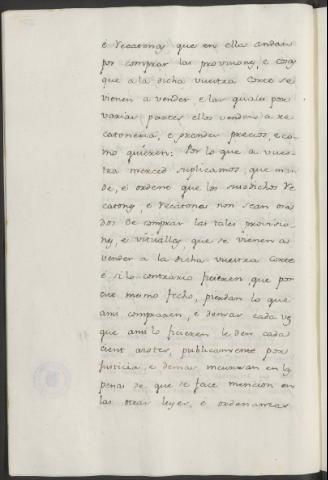 é Recatones que en ella andan
por comprar las provisiones, e cosas
que a la dicha vuestra Corte se
vienen a vender e las quales por
varias partes ellos venden a re
catoneria, e grandes precios, e co
mo quieren: Por lo que a vues
tra merced suplicamos, que man
de, é ordene que los susodichos Re
catones, é Recatonas non sean osa
dos de comprar las tales provisio
nes, e vituallas, que se vienen a
vender a la dicha vuestra Corte
é si lo contrario ficieren, que por
ese mismo fecho, pierdan lo que
ansi compraren, e demas cada vez
que ansi lo ficieren le den cada
cient azotes, publicamente por
Justicia, e demas incurran en las
penas de que se face mencion en
las otras leyes, é ordenanzas